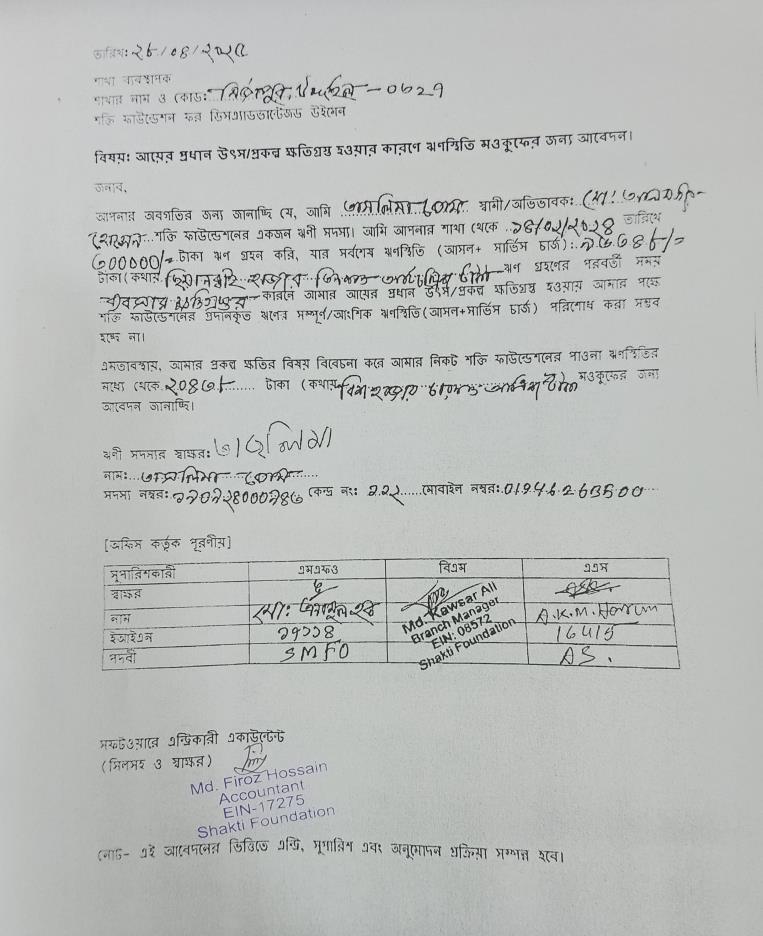 তারিখ: ২৮/০৪/২০২৫
শাখা ব্যবস্থাপক
শাখার নাম ও কোড: মির্জাপুর, - ০৬২৭
শক্তি ফাউন্ডেশন ফর ডিসএ্যাডভান্টেজড উইমেন
বিষয়: আয়ের প্রধান উৎস/প্রকল্প ক্ষতিগ্রস্ত হওয়ার কারণে ঋণস্থিতি মওকুফের জন্য আবেদন।
জনাব,
আপনার অবগতির জন্য জানাচ্ছি যে, আমি তাসলিমা বেগম স্বামী/অভিভাবক: মো:
হোসেন শক্তি ফাউন্ডেশনের একজন ঋণী সদস্য। আমি আপনার শাখা থেকে ১৪/০২/২০২৪ তারিখে
৩০০০০০/= টাকা ঋণ গ্রহন করি, যার সর্বশেষ ঋণস্থিতি (আসল+ সার্ভিস চার্জ):
টাকা (কথায়: হাজার তিনশত টাকা ঋণ গ্রহণের পরবর্তী সময়
ব্যবসার কারনে আমার আয়ের প্রধান উৎস/প্রকল্প ক্ষতিগ্রস্ত হওয়ায় আমার পক্ষে
শক্তি ফাউন্ডেশনের প্রদানকৃত ঋণের সম্পূর্ণ/আংশিক ঋণস্থিতি (আসল+সার্ভিস চার্জ) পরিশোধ করা সম্ভব
হচ্ছে না।
এমতাবস্থায়, আমার প্রকল্প ক্ষতির বিষয় বিবেচনা করে আমার নিকট শক্তি ফাউন্ডেশনের পাওনা ঋণস্থিতির
মধ্যে থেকে টাকা (কথায় বিশ হাজার চারশত টাকা মওকুফের জন্য
আবেদন জানাচ্ছি।
ঋণী সদস্যর স্বাক্ষর: তাছলিমা
নাম: তাসলিমা বেগম
সদস্য নম্বর: কেন্দ্র নং: ২২২ মোবাইল নম্বর:
[অফিস কর্তৃক পূরণীয়]
সুপারিশকারী এমএফও বিএম এএস
স্বাক্ষর
নাম মো: Md. Kawsar Ali A.K.M. Harun
Branch Manager
ইআইএন ১৭১১৪ EIN: 08572 16415
পদবী SMFO Shakti Foundation AS.
সফটওয়ারে এন্ট্রিকারী একাউন্টেন্ট
(সিলসহ ও স্বাক্ষর)
Md. Firoz Hossain
Accountant
EIN-17275
Shakti Foundation
নোট- এই আবেদনের ভিত্তিতে এন্ট্রি, সুপারিশ এবং অনুমোদন প্রক্রিয়া সম্পন্ন হবে।